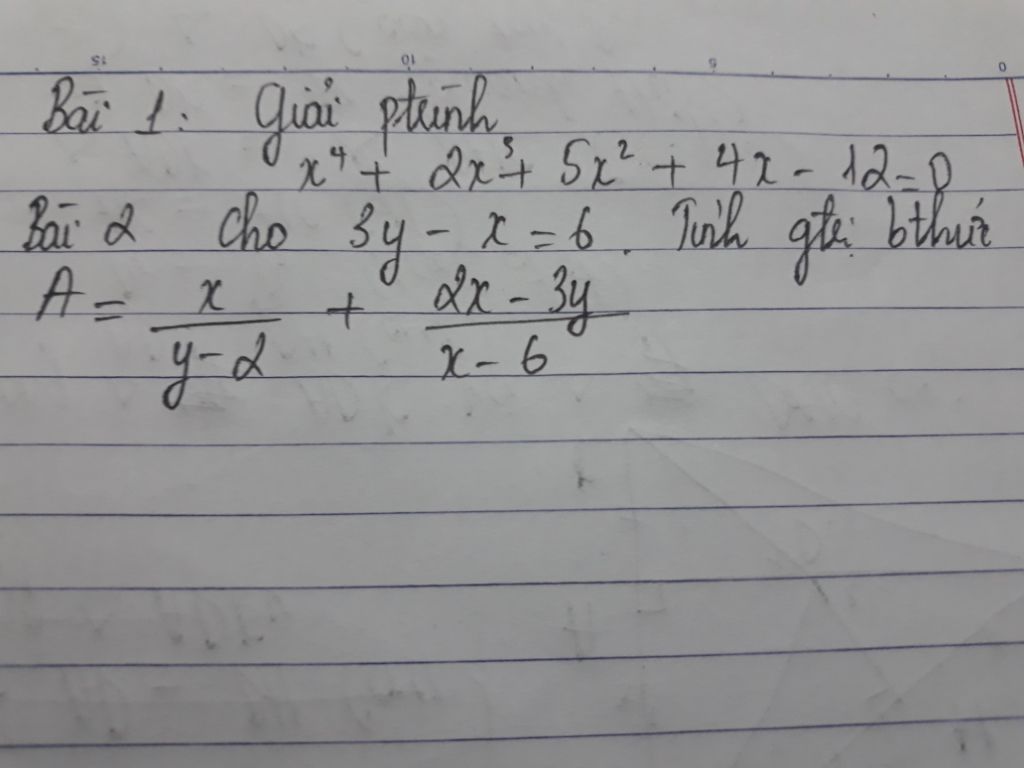 15 10 5 0
Bài 1: Giải ptrình
x⁴ + 2x³ + 5x² + 4x - 12 = 0
Bài 2 Cho 3y - x = 6. Tính gtrị bthức
A = x/(y - 2) + (2x - 3y)/(x - 6)